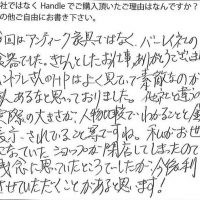 社ではなく Handle でご購入頂いたご理由はなんですか?
の他ご自由にお書き下さい。
今回はアンティーク家具ではなく、バーレイネの
食器でした。きちんとしたお仕事、ありがとうござ
ハンドルさんのHPはよく見ていて素敵なのが
沢あるなと思っておりました。他社と違い
実際の大きさが、人物比較でわかることと金
表示されていること等ですね。私がお世
になっていたショップが閉店してしまったので
残念に思っていたところでしたが、今後利
させていただくことがあると思います!